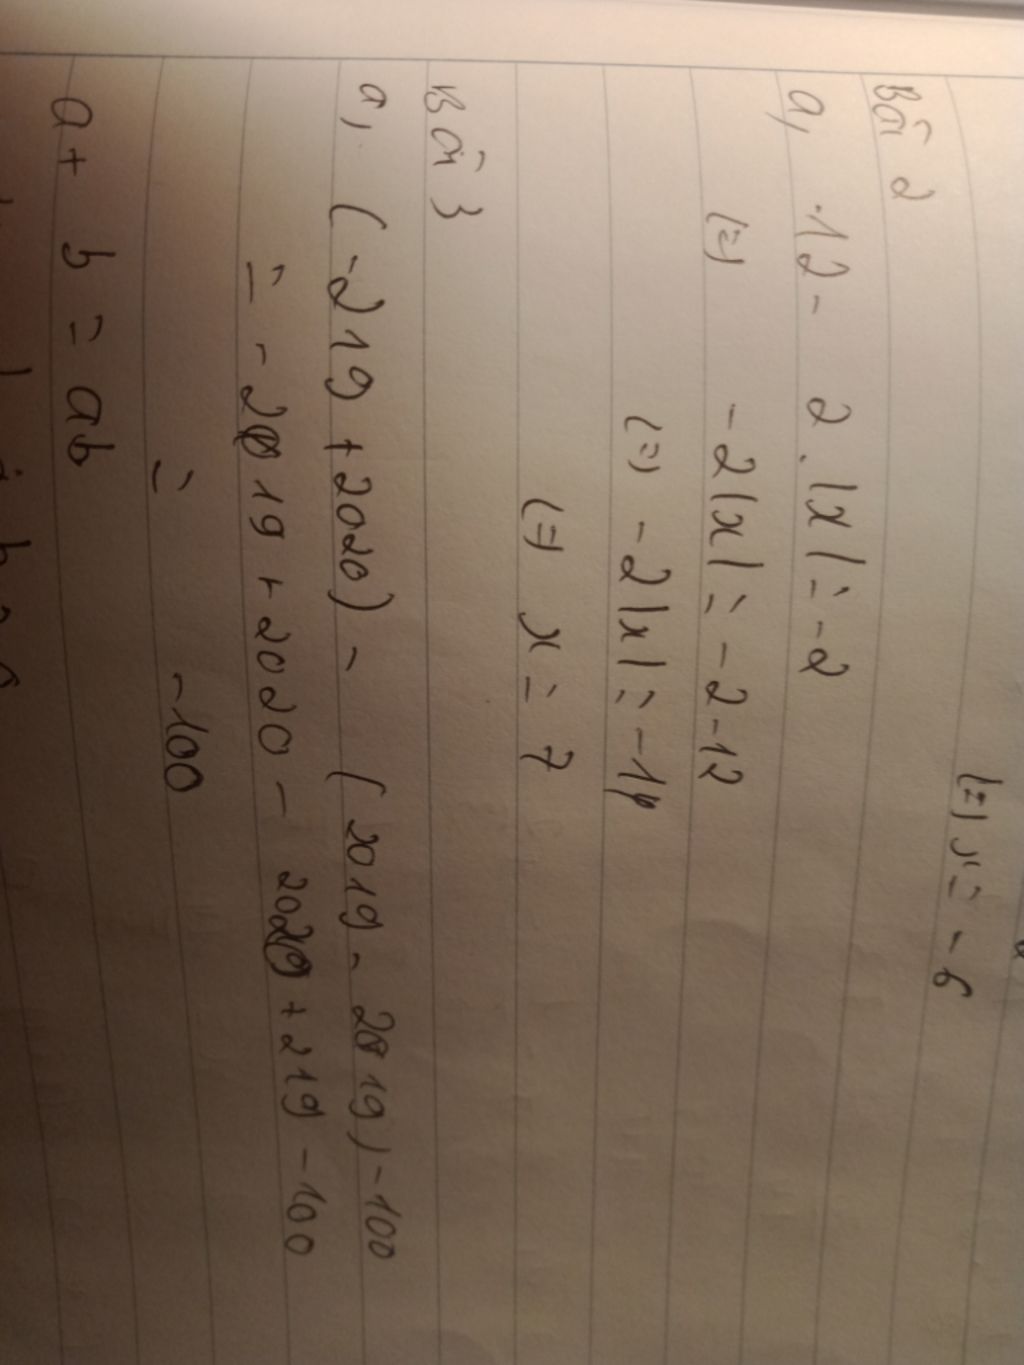 (=) x = - 6
Bài 2
a, 12 - 2.|x| = -2
(=) -2|x| = -2-12
(=) -2|x| = -14
(=) x = 7
Bài 3
a, (-219 + 2020) - (2019 - 2019) - 100
= -219 + 2020 - 2020 + 219 - 100
= -100
a + b = ab